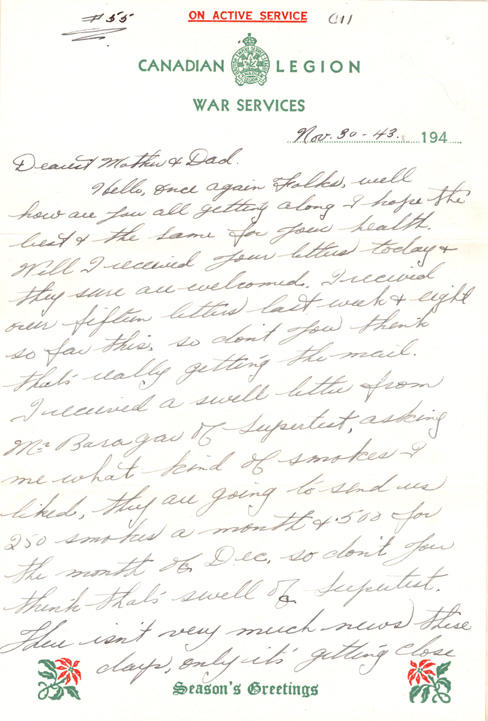 #55
ON ACTIVE SERVICE
CANADIAN LEGION
WAR SERVICES
Nov. 30-43. 194
Dearest Mother & Dad.
Hello, once again Folks, well
how are you all getting along I hope the
best & the same for your health.
Will I received your letters today &
they sure are welcomed. I received
over fifteen letters last week & eight
so far this, so don't you think
that's really getting the mail.
I received a swell letter from
Mr Baragar of Supertest, asking
me what kind of smokes I
liked, they are going to send us
250 smokes a month & 500 for
the month of Dec, so don't you
think that's swell of Supertest.
There isn't very much news these
days, only it's getting close
Season's Greetings